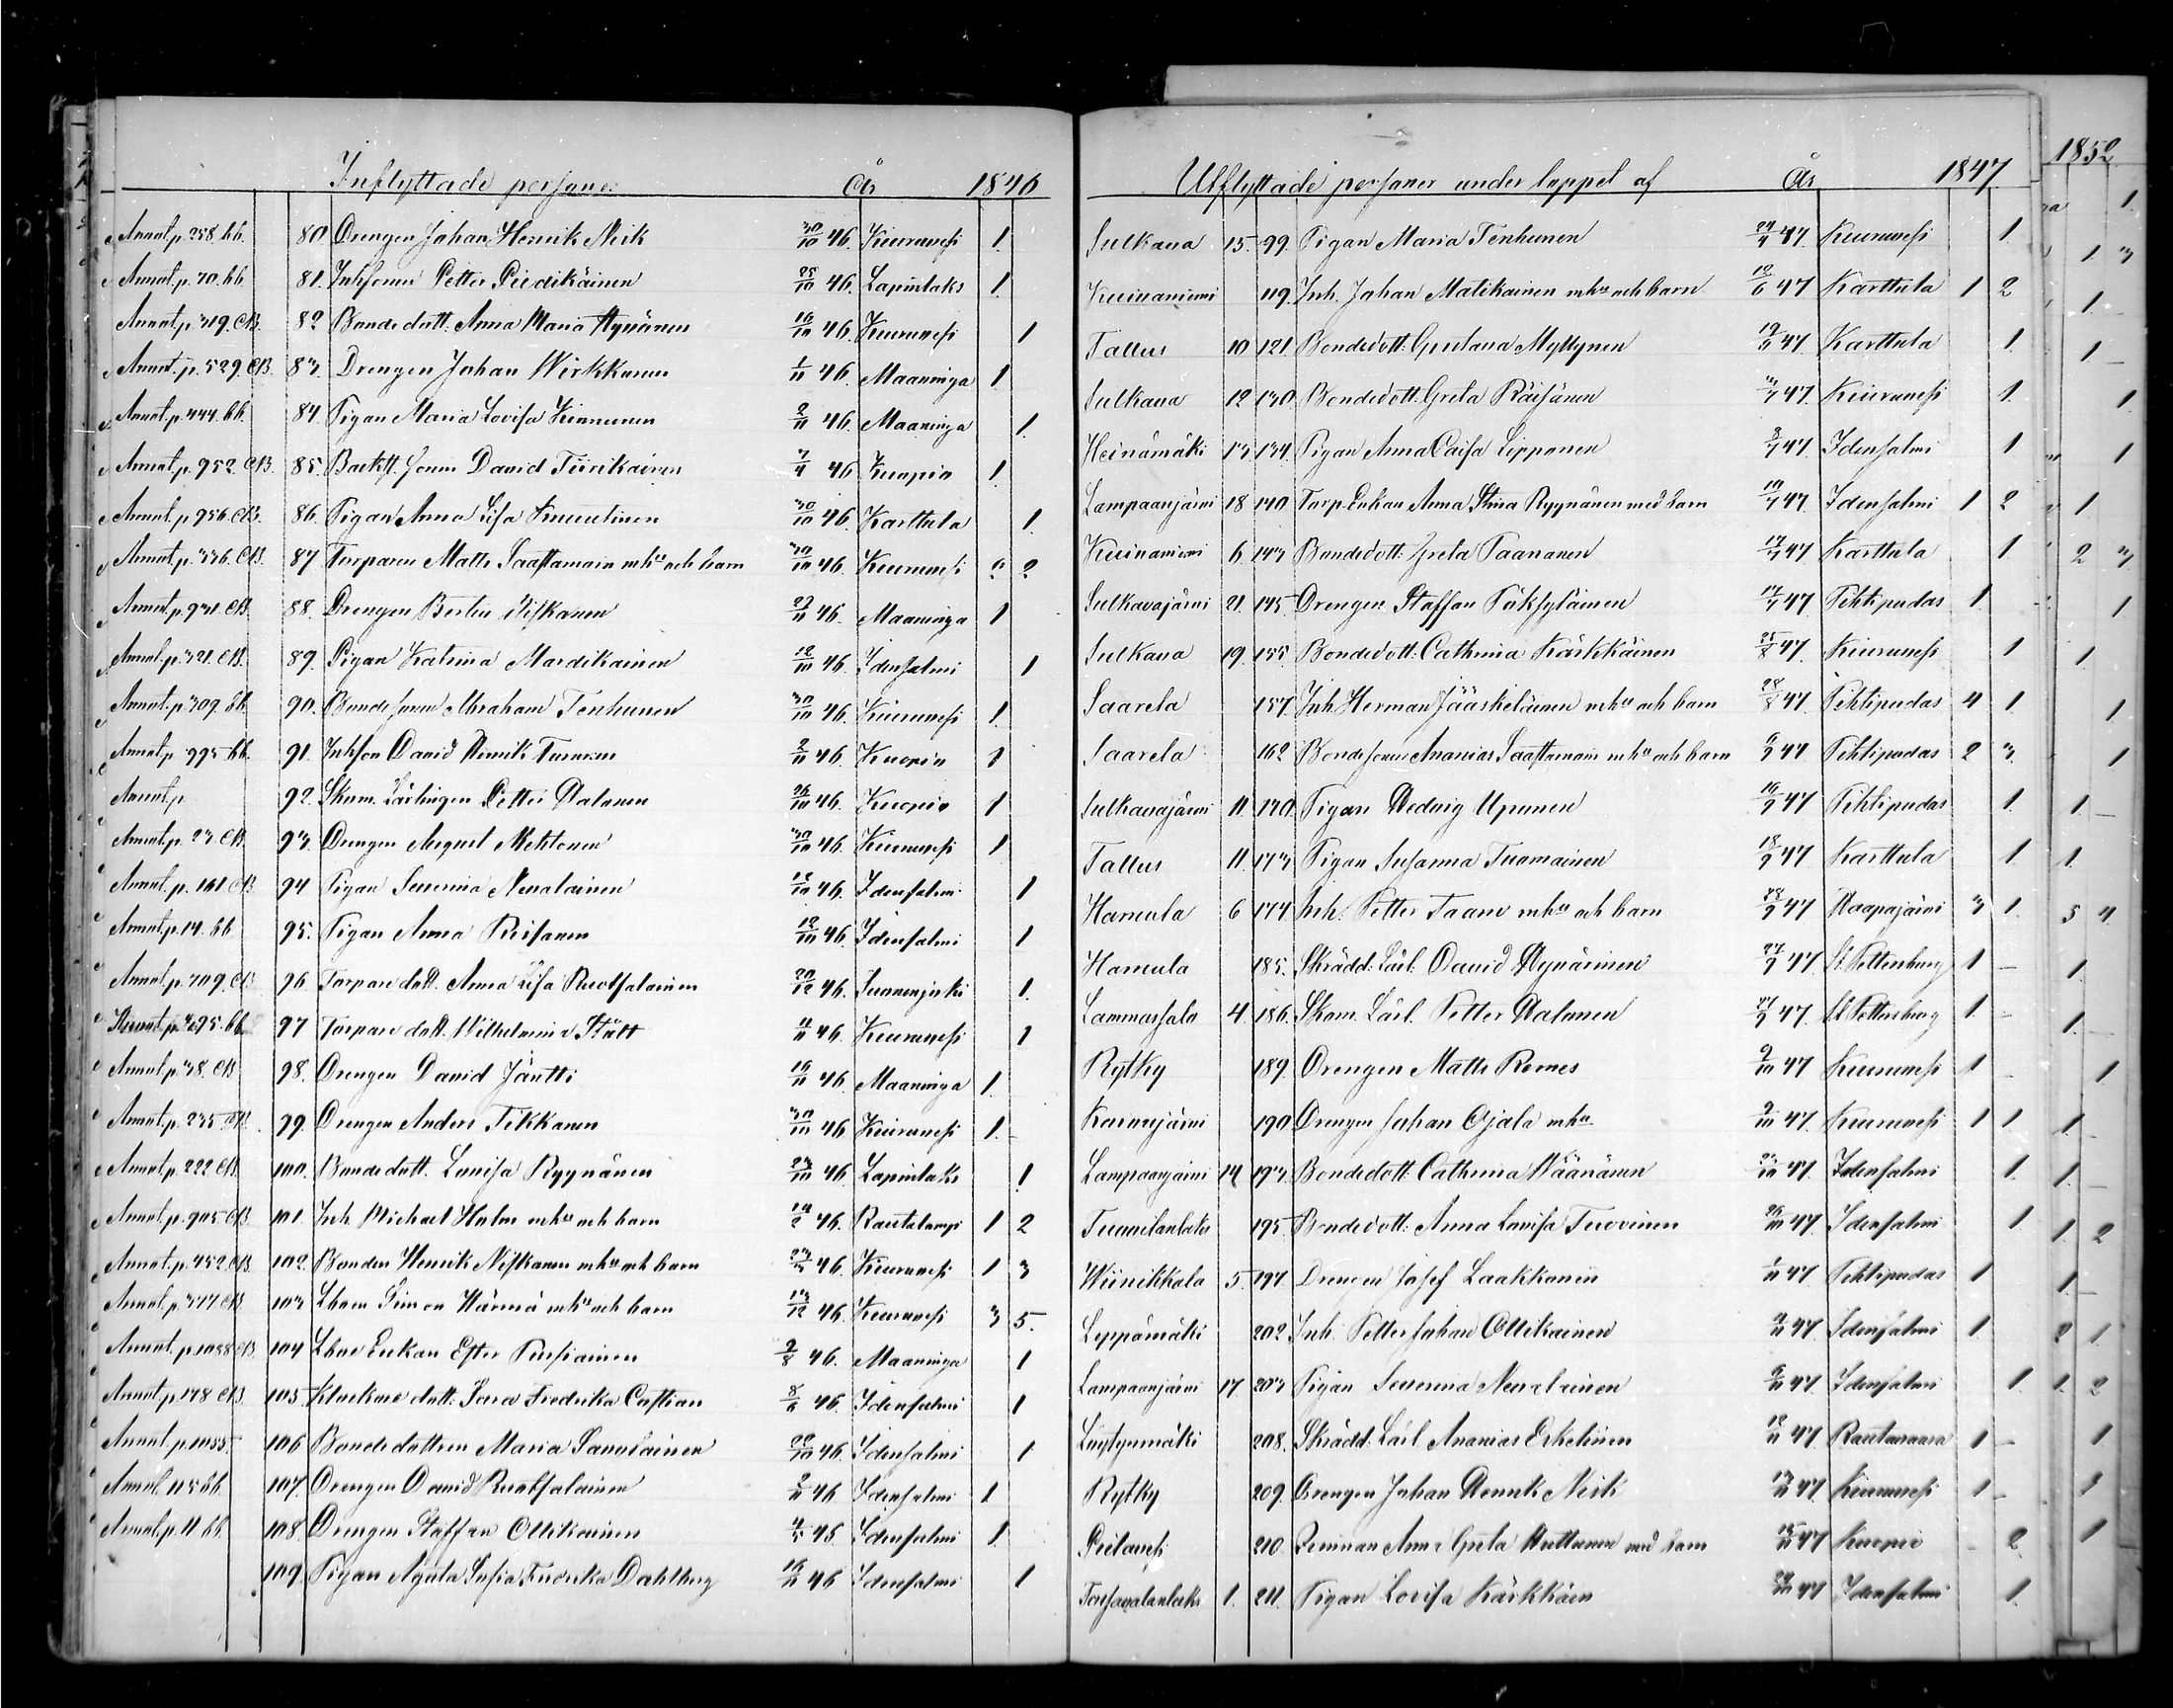 Inflyttade personer År 1846
Annot. p. 258. bb. 80. Drengen Johan Henrik Neik 30/10 46. Kiuruvesi 1.
Annot. p. 70. bb. 81. Inhsonen Petter Piedikäinen 25/10 46. Lapinlaks 1.
Annot. p. 319. CB. 82 Bonde dott. Anna Maria Hynönen 16/10 46. Kiuruvesi 1
Annot. p. 529. CB. 83. Drengen Johan Wirkkunen 1/11 46. Maaninga 1
Annot. p. 444. bb. 84. Pigan Maria Lovisa Kinnunen 2/11 46. Maaninga 1.
Annot. p. 952. CB. 85. David Tiirikainen 7/4 46 Kuopio 1.
Annot. p. 956. CB. 86. Pigan Anna Lisa Knuutinen 30/10 46. Karttula 1.
Annot. p. 336. CB. 87 Torparen Matts Saastamoin mhu och barn 30/10 46. Kiuruvesi 2
Annot. p. 931. CB. 88. Drengen Bertin 22/11 46. Maaninga 1
Annot. p. 321. CB. 89. Pigan Katrina Mardikainen 12/10 46. Idensalmi 1
Annot. p. 309. bb. 90. Bonde sonen Abraham Tenhunen 30/10 46. Kiuruvesi 1.
Annot. p. 995 bb. 91. Inhson David Henrik Turunen 2/11 46. Kuopio 1
Annot. p. 92. Skom. Lärlingen Petter Halonen 26/10 46. Kuopio 1
Annot. p. 23 CB. 93. Drengen August Mehtonen 30/10 46. Kiuruvesi 1.
Annot. p. 161. CB. 94 Pigan Severina Nevalainen 12/10 46. Idensalmi 1
Annot. p. 14. bb 95. Pigan Anna Riisanen 12/10 46. Idensalmi 1
Annot. p. 709. CB 96. Torpare dott. Anna Lisa Ruotsalainen 20/12 46. 1.
Annot. p. 295. bb 97 Torpare dott. Wilhelmina Stått 11/11 46. Kiuruvesi 1
Annot. p. 38. CB 98. Drengen David Jäntti 16/11 46. Maaninga 1.
Annot. p. 235. CB. 99. Drengen Anders Tikkanen 30/10 46 Kiuruvesi 1.
Annot. p. 222 CB. 100. Bonde dott. Lovisa Ryynänen 23/10 46. Lapinlaks 1
Annot. p. 905. CB 101. Inh. Michael Holm mhu och barn 14/2 46. Rautalampi 1 2
Annot. p. 452. CB. 102. Bonden Henrik Niskanen mhu och barn 46. Kiuruvesi 1 3
Annot. p. 377 CB 103 Lbon Simon Härmä mhu och barn 13/12 46. Kiuruvesi 3 5.
Annot. p. 1088 CB. 104 Lboe Enkan Ester Pursiainen 2/8 46. Maaninga 1
Annot. p. 178 CB. 105. Klockare dott. Sara Fredrika Castian 8/6 46. Idensalmi 1
Annot. p. 1055. 106 Bonde dottren Maria Savolainen 22/10 46. Idensalmi 1
Annot. 115 bb. 107. Drengen David Ruotsalainen 2/11 46 Idensalmi 1
Annot. p. 11 bb. 108. Drengen Staffan Ollikainen 4/5 45 Idensalmi 1.
109. Pigan Agata Sofia Fredrika Dahlberg 16/11 46 Idensalmi 1
Utflyttade personer under loppet af År 1847
Sulkava 15. 99. Pigan Maria Tenhunen 29/4 47 Kiuruvesi 1.
Kuivaniemi 119. Inh. Johan Matikainen mhu och barn 12/6 47 Karttula 1 2
Tallus 10 121. Bondedott. Gustava Myllynen 47 Karttula 1.
Sulkava 12 130. Bondedott. Greta Räisänen 3/7 47. Kiuruvesi 1.
Heinämäki 13. 134. Pigan Anna Caisa Lipponen 3/7 47. Idensalmi 1
Lampaanjärvi 18 140 Torp. Enkan Anna Stina Ryynänen med barn 10/7 47. Idensalmi 1 2
Kuivaniemi 6. 143 Bondedott. Greta Taananen 17/7 47 Karttula 1
Sulkavajärvi 21. 145. Drengen Staffan Pöksyläinen 17/7 47 Pihtipudas 1
Sulkava 19. 155. Bondedott. Cathrina Kärkkäinen 25/8 47. Kiuruvesi 1
Saarela 157. Inh. Herman Jääskeläinen mhu och barn 28/8 47. Pihtipudas 4 1.
Saarela 162 Bondesonen Ananias Saastamoin mhu och barn 6/9 47 Pihtipudas 2 3.
Sulkavajärvi 11. 170. Pigan Hedvig Upunen 16/9 47 Pihtipudas 1.
Tallus 11. 173. Pigan Susanna Tuomainen 18/9 47 Karttula 1.
Hamula 6 174. Inh. Petter Taam mhu och barn 47 Haapajärvi 3 1.
Hamula 185. Skrädd. Lärl. David Hynönen 27/9 47 St. Pettersburg 1 —
Lammassalo 4. 186. Skom. Lärl. Petter Halonen 27/9 47. St. Pettersburg 1. —
Rytky 189. Drengen Matts Romes 2/10 47 Kiuruvesi 1 —
190 Drengen Johan Ojala mhu 2/10 47. Kiuruvesi 1 1
Lampaanjärvi 14. 193. Bondedott. Cathrina Wäänänen 47. Idensalmi 1.
195. Bondedott. Anna Lovisa Tuovinen 26/10 47. Idensalmi 1
Wiinikkala 5. 197. Drengen Josef Laakkonen 1/11 47 Pihtipudas 1
Leppämäki 202 Inh. Petter Johan Ollikainen 2/11 47 Idensalmi 1.
Lampaanjärvi 17. 203 Pigan Severina Nevalainen 47 Idensalmi 1.
208. Skrädd. Lärl. Ananias Eskelinen 12/11 47 Rautavaara 1 —
Rytky 209. Drengen Johan Henrik Neik 13/11 47. Kiuruvesi 1 —
Pielavesi 210. Anna Greta Huttunen med barn 15/11 47 Kuopio 2.
1. 211. Pigan Lovisa Kärkkäin 47 Idensalmi 1.
1852